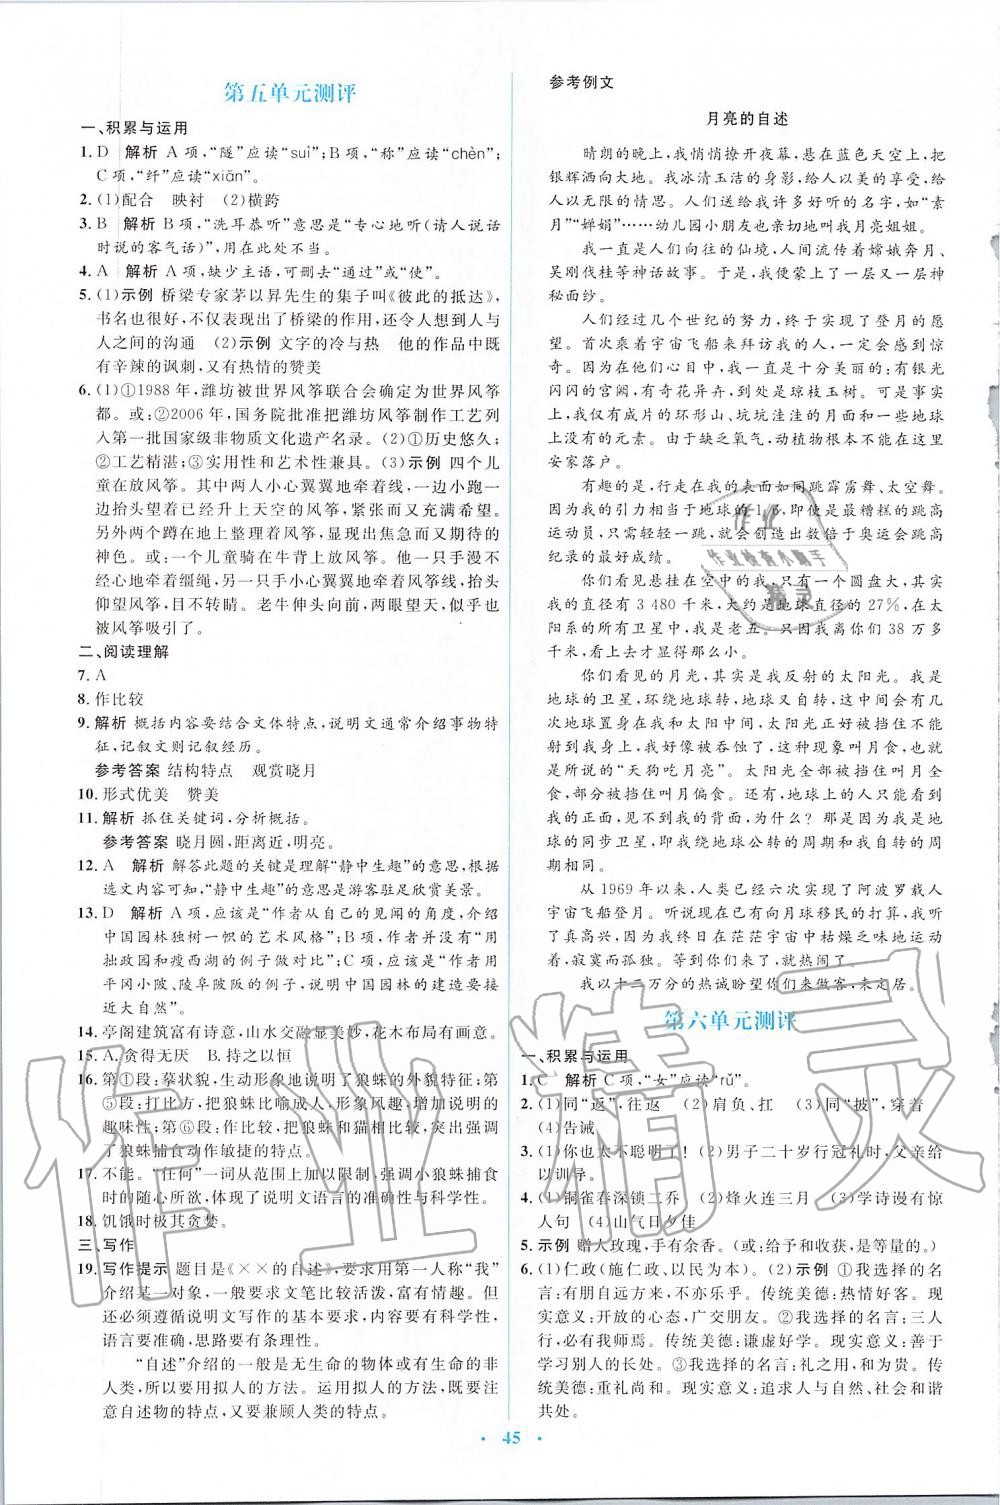 第五单元测评
一、积累与运用
1. D　解析 A 项,“隧”应读“suì”;B 项,“称”应读“chèn”;
C 项,“纤”应读“xiān”。
2. (1)配合　映衬　(2)横跨
3. B　解析 B 项,“洗耳恭听”意思是“专心地听(请人说话
时说的客气话)”,用在此处不当。
4. A　解析 A 项,缺少主语,可删去“通过”或“使”。
5. (1)示例 桥梁专家茅以昇先生的集子叫《彼此的抵达》,
书名也很贴切,不仅表现出了桥梁的作用,还令人想到人与
人之间的沟通　(2)示例 文字的冷与热　他的作品中既
有辛辣的讽刺,又有热情的赞美
6. (1)①1988 年,潍坊被世界风筝联合会确定为世界风筝
都。或:②2006 年,国务院批准把潍坊风筝制作工艺列
入第一批国家级非物质文化遗产名录。(2)①历史悠久;
②工艺精湛;③实用性和艺术性兼具。(3)示例 四个儿
童在放风筝。其中两人小心翼翼地牵着线,一边小跑一
边抬头望着已经升上天空的风筝,紧张而又充满希望。
另外两个蹲在地上整理着风筝,显出焦急而又期待的
神色。下一个儿童骑在牛背上放风筝。他一只手漫不
经心地牵着缰绳,另一只手小心翼翼地牵着风筝线,抬头
仰望风筝,目不转睛。老牛伸头向前,两眼圆睁,似乎也
被风筝吸引了。
二、阅读理解
7. A
8. 作比较
9. 解析 概括内容要结合文体特点,说明文通常介绍事物特
征,记叙文则记叙经历。
参考答案 结构特点　观赏晓月
10. 形式优美　赞美
11. 解析 抓住关键词,分析概括。
参考答案 晓月圆,距离近,明亮。
12. A　解析 解答此题的关键是理解“静中生趣”的意思,根据
选文内容可知,“静中生趣”的意思是游客驻足欣赏美景。
13. D　解析 A 项,应该是“作者从自己的见闻的角度,介绍
中国园林独树一帜的艺术风格”;B 项,作者并没有“用
拙政园和瘦西湖的例子做对比”;C 项,应该是“作者用
平冈小陂、陵阜陂阪的例子,说明中国园林的建造要接
近大自然”。
14. 亭阁建筑富有诗意,山水交融显美妙,花木布局有画意。
15. A. 贪得无厌　B. 持之以恒
16. 第①段:摹状貌,生动形象地说明了狼蛛的外貌特征;第
⑤段:打比方,把狼蛛比喻成人,形象风趣,增强说明的
趣味性;第⑥段:作比较,把狼蛛和猫相比较,突出强调了
狼蛛捕食动作敏捷的特点。
17. 不能。“任何”一词从范围上加以限制,强调小狼蛛捕食
时的随心所欲,体现了说明文语言的准确性与科学性。
18. 饥饿时极其贪婪。
三、写作
19. 写作提示 题目是《××的自述》,要求用第一人称“我”
介绍某一对象,一般要求文笔比较活泼,富有情趣。但
还必须遵循说明文写作的基本要求,如抓住特征,说明
语言要准确,思路要有条理性。
“自述”介绍的一般是无生命的物体或有生命的非
人类,所以要用拟人的方法。运用拟人的方法,既要注
意自述物的特点,又要兼顾人类的特点。
参考例文
月亮的自述
晴朗的晚上,我悄悄撩开夜幕,悬在蓝色天空上,把
银辉洒向大地。我冰清玉洁的身影,给人以美的享受,给
人以无限的思情。人们送给我许多好听的名字,如“素
月”“婵娟”……幼儿园小朋友也亲切地叫我月亮姐姐。
我一直是人们向往的仙境,人间流传着嫦娥奔月、
吴刚伐桂等神话故事。于是,我便蒙上了一层又一层神
秘面纱。
人们经过几个世纪的努力,终于实现了登月的愿
望。首次乘着宇宙飞船来拜访我的人,一定会感到惊
奇。因为在他们心目中,我一直是十分美丽的:有银光
闪闪的宫阙,有奇花异卉,到处是琼枝玉树。可是事实
上,我仅有成片的环形山、坑坑洼洼的月面和一些地球
上没有的元素。由于缺乏氧气,动植物根本不能在这里
安家落户。
有趣的是,行走在我的表面如同跳霹雳舞、太空舞。
因为我的引力相当于地球的 1/6,即使是最糟糕的跳高
运动员,只需轻轻一跳,就会创造出数倍于奥运会跳高
纪录的最好成绩。
你们看见悬挂在空中的我,只有一个圆盘大,其实
我的直径有 3 480 千米,大约是地球直径的 27%,在太
阳系的所有卫星中,我是老五。只因离你们 38 万多
千米,看上去才显得那么小。
你们看见的月光,其实是我反射的太阳光。我是
地球的卫星,环绕地球转,地球又自转,这中间会有几
次地球置身在我和太阳中间,太阳光正好被挡住不能
射到我这里,我就好像被吞蚀了,这种现象叫月食,也就
是所说的“天狗吃月亮”。太阳光全部被挡住叫月全
食,一部分被挡住叫月偏食。地球上的人只能看到我
的正面,见不到我的背面,为什么?因为我是地球
的同步卫星,即我绕地球公转的周期和我自转的
周期相同。
从 1969 年以来,人类已经六次实现了阿波罗载人
宇宙飞船登月。听说现在已有向月球移民的打算,我成
了真高兴,因为我终日在茫茫宇宙中枯燥乏味地运动
着,寂寞而孤独。等到你们来了,就热闹了。
我以十二万分的热诚盼望你们来做客,来定居。
第六单元测评
一、积累与运用
1. C　解析 C 项,“女”应读“rǔ”。
2. (1)同“返”,往返　(2)肩负、扛　(3)同“披”,穿着
(4)告诫
3. (1)你也太不聪明了!　(2)男子二十岁行冠礼时,父亲给
以训导。
4. (1)铜雀春深锁二乔　(2)烽火连三月　(3)学诗谩有惊
人句　(4)山气日夕佳
5. 示例 赠人玫瑰,手有余香。(或:给予和收获,是等量的。)
6. (1)仁政(施仁政、以民为本)。(2)示例 ①我选择的名
言:有朋自远方来,不亦乐乎。传统美德:热情好客。现
实意义:开放的心态,广交朋友。②我选择的名言:三人
行,必有我师焉。传统美德:谦虚好学。现实意义:善于
学习别人的长处。③我选择的名言:礼之用,和为贵。
传统美德:重礼尚和。现实意义:追求人与自然、社会和谐
共处。
45
作业精灵
作业检查小助手